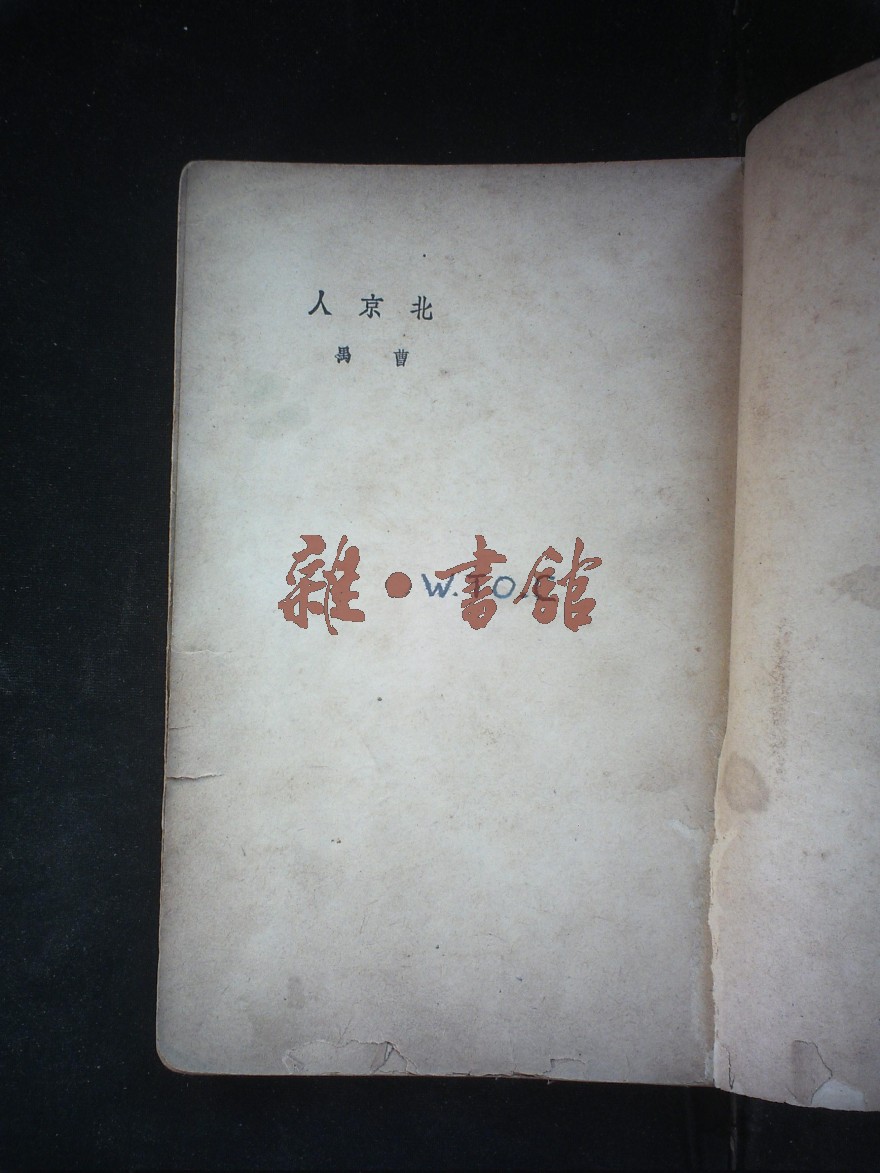 北京人
曹禺
雜·書館
W.T.O.C